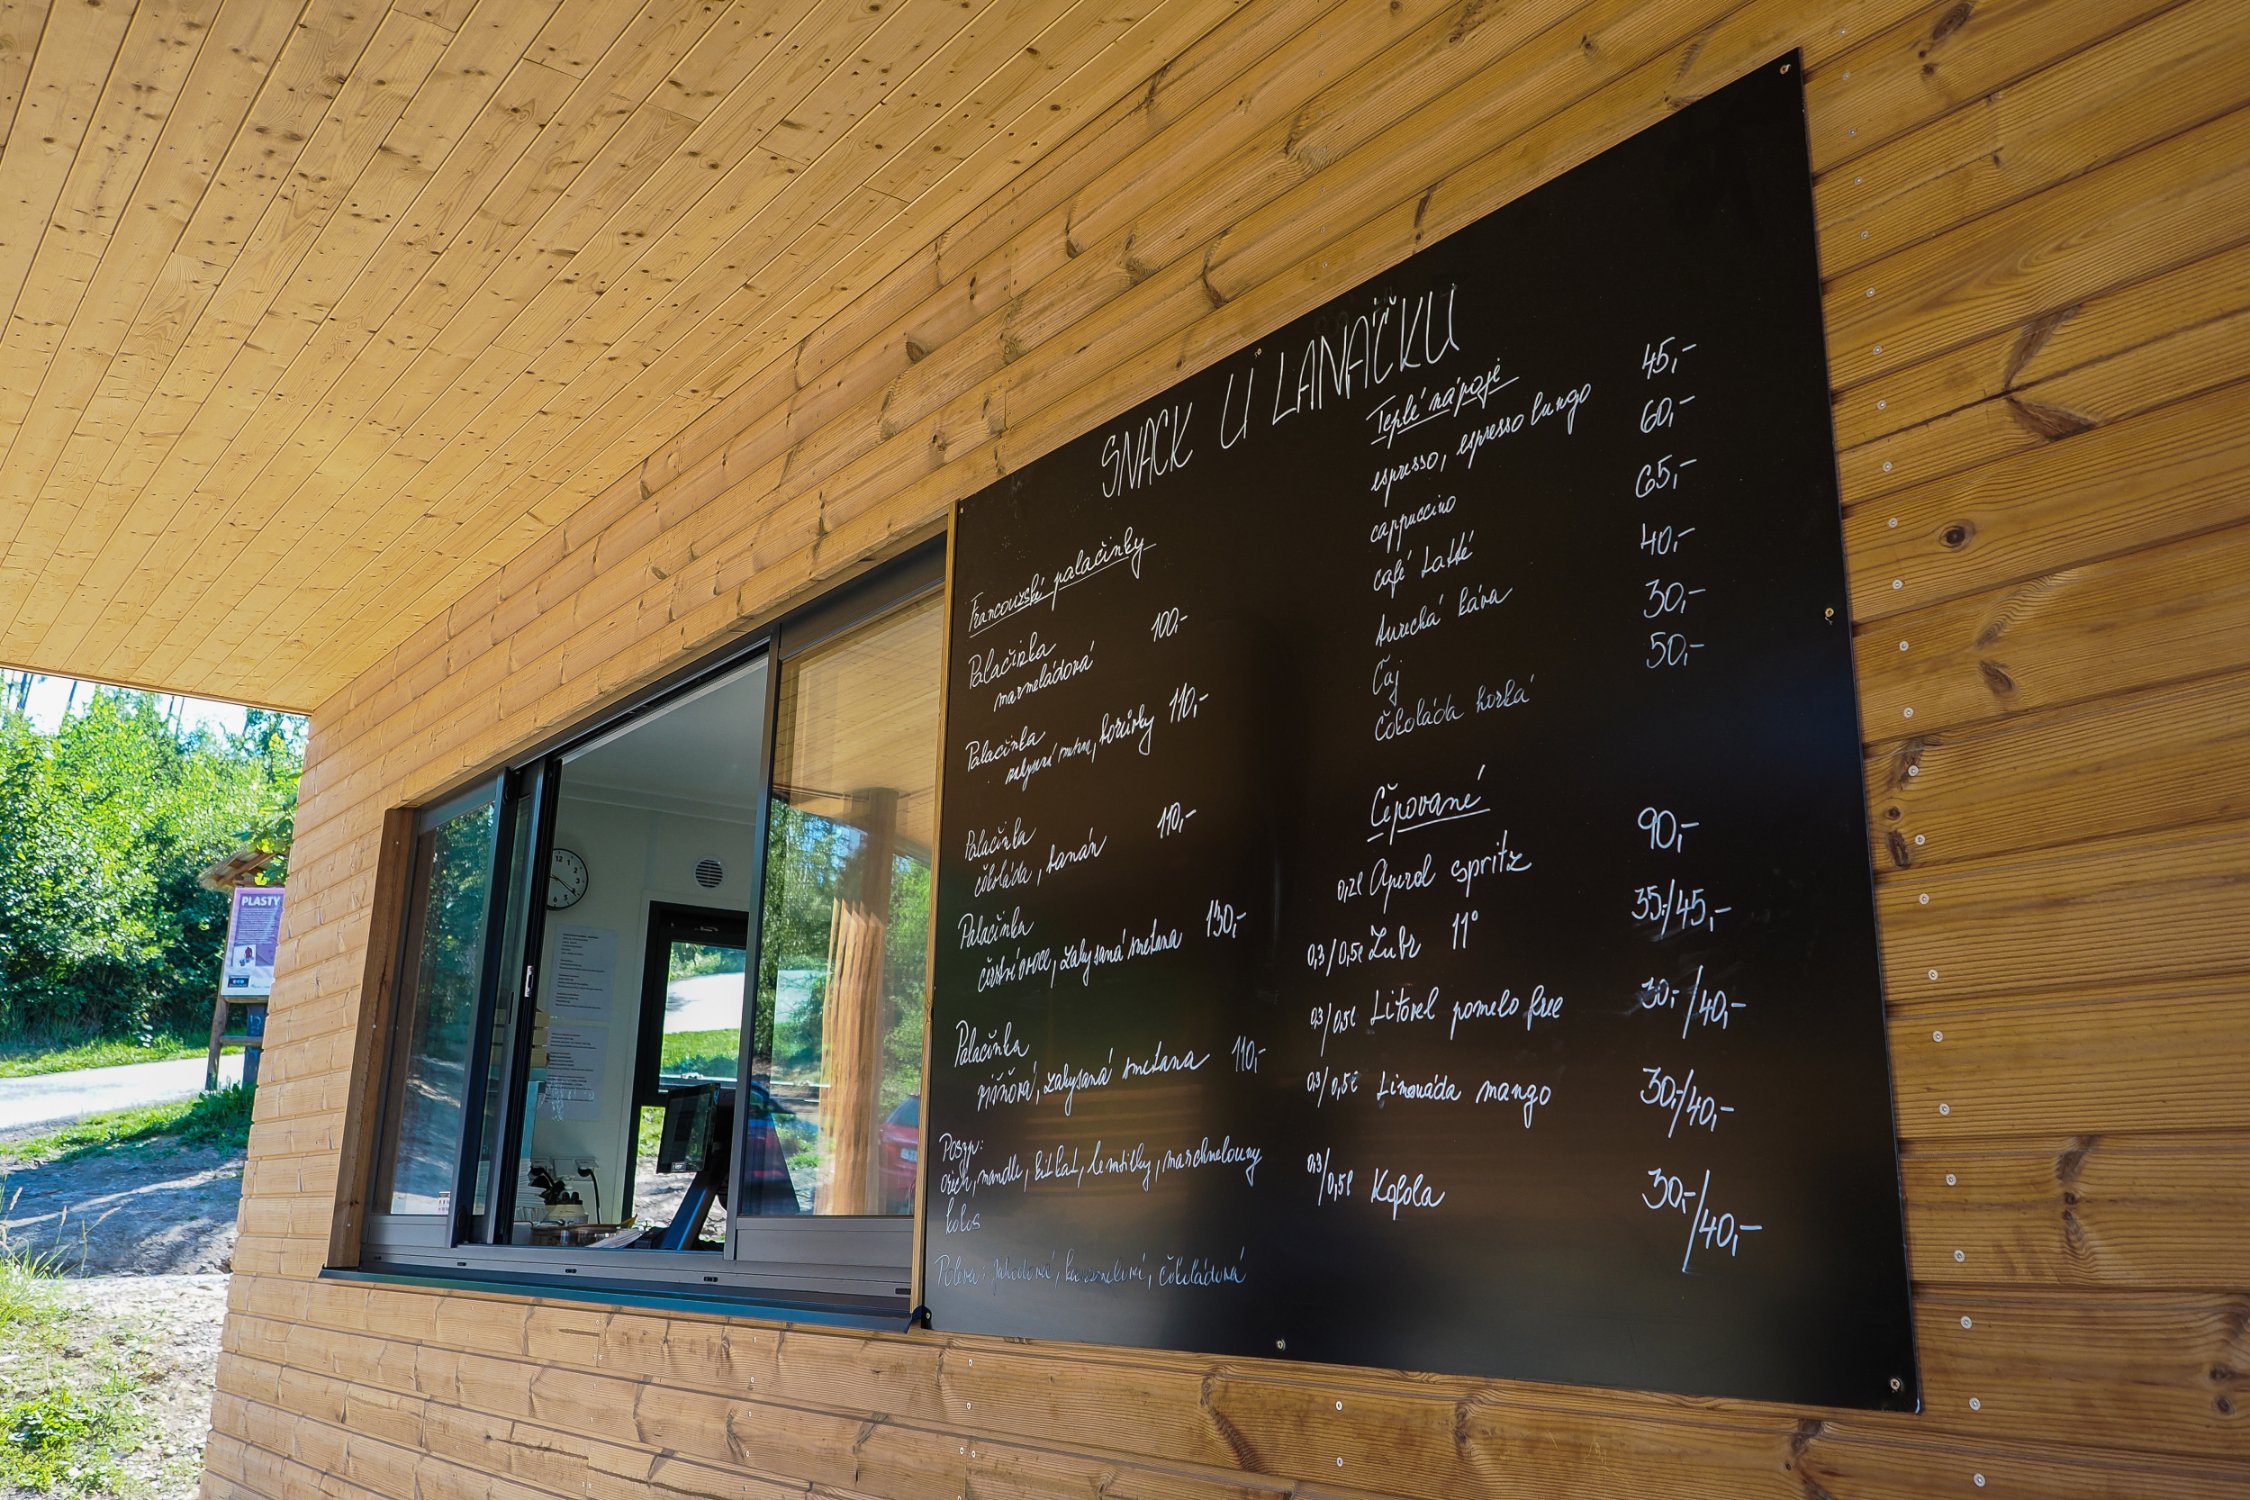 SNACK U LANÁČKU
Francouzské palačinky
Palačinka 100,-
marmeládová
Palačinka
borůvky 110,-
Palačinka
čokoláda, banán 110,-
Palačinka
čerství ovoce, zakysaná smetana 130,-
Palačinka
višňová, zakysaná smetana 110,-
Posyp:
ořech, mandle, kitkat, lentilky, marshmelouny
kokos
Poleva: jahodová, karamelová, čokoládová
Teplé nápoje
espresso, espresso lungo 45,-
cappuccino 60,-
café Latté 65,-
turecká káva 40,-
Čaj 30,-
čokoláda horká 50,-
Čepované
0,2l Aperol spritz 90,-
0,3/0,5l Zubr 11° 35,-/45,-
0,3/0,5l Litovel pomelo free 30,-/40,-
0,3/0,5l Limonáda mango 30,-/40,-
0,3/0,5l Kofola 30,-/40,-
PLASTY